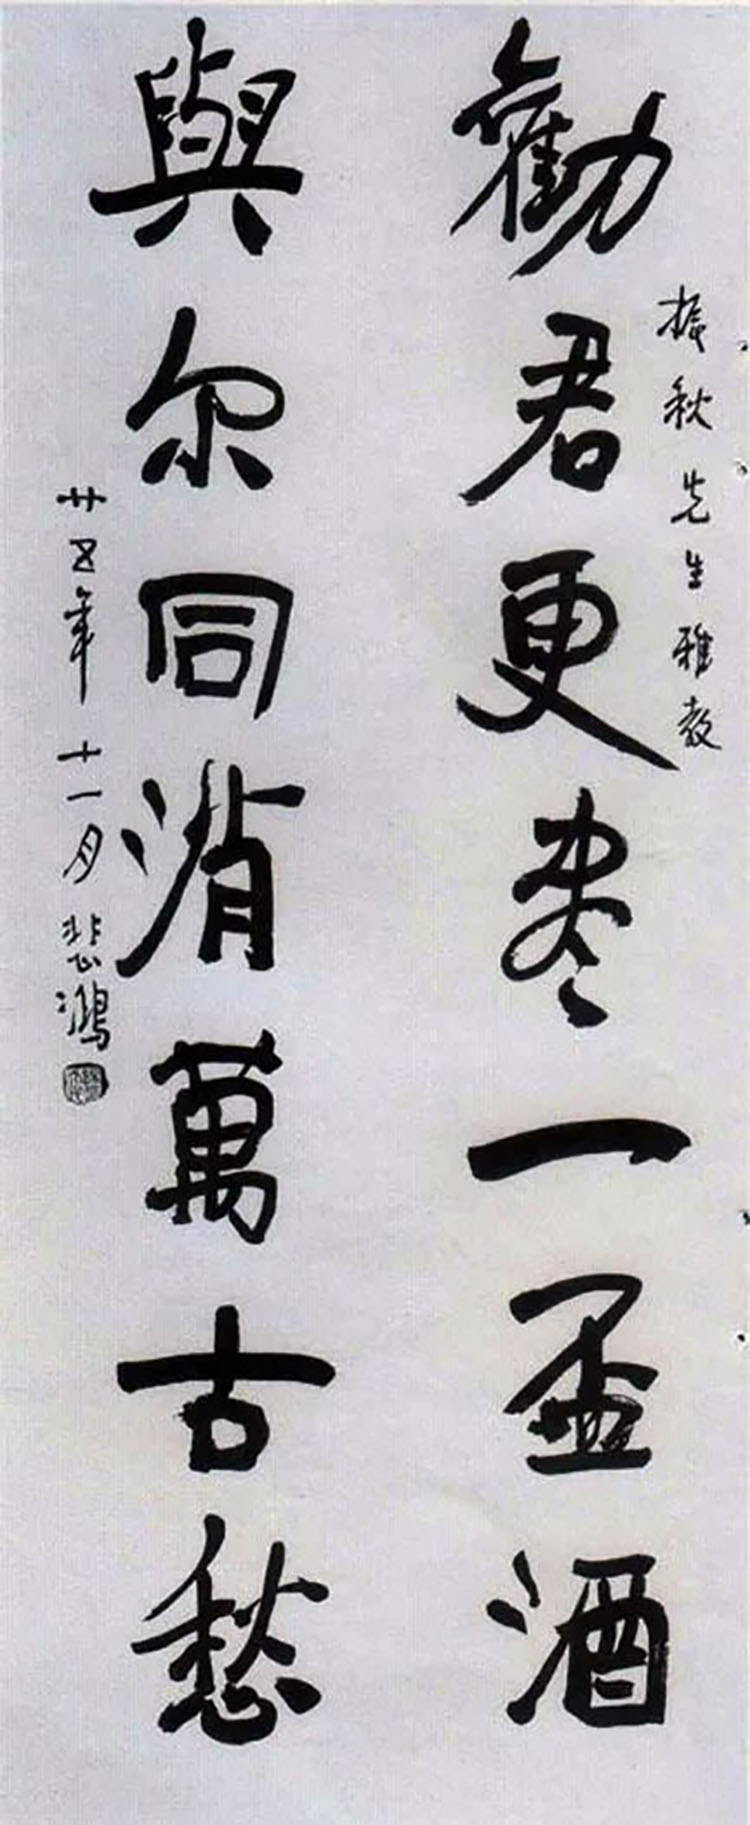 勸君更盡一盃酒
振秋先生雅教
與尔同消萬古愁
廿五年十一月悲鴻